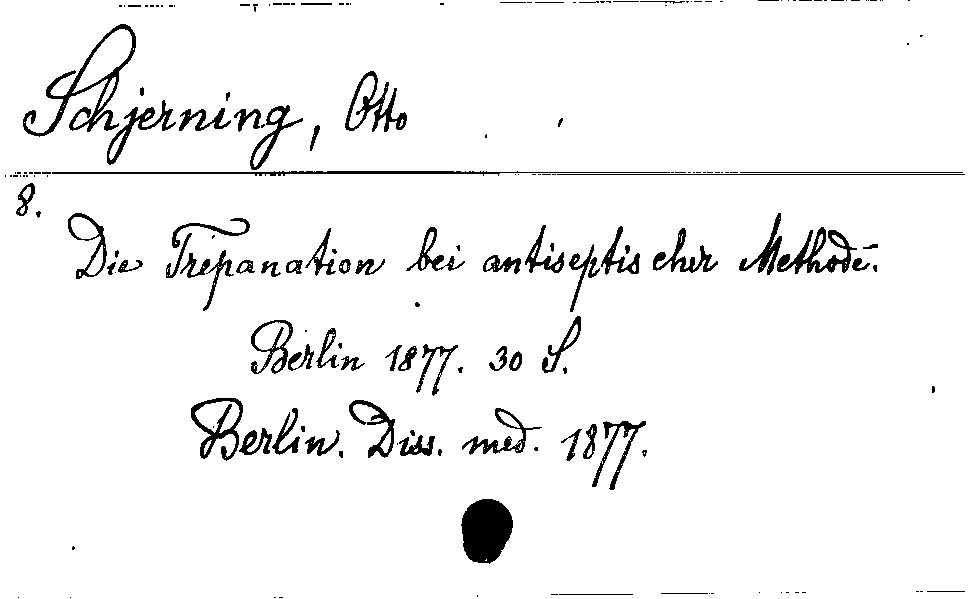 Schjerning, Otto
8.
Die Trepanation bei antiseptischer Methode.
Berlin 1877. 30 S.
Berlin. Diss. med. 1877.